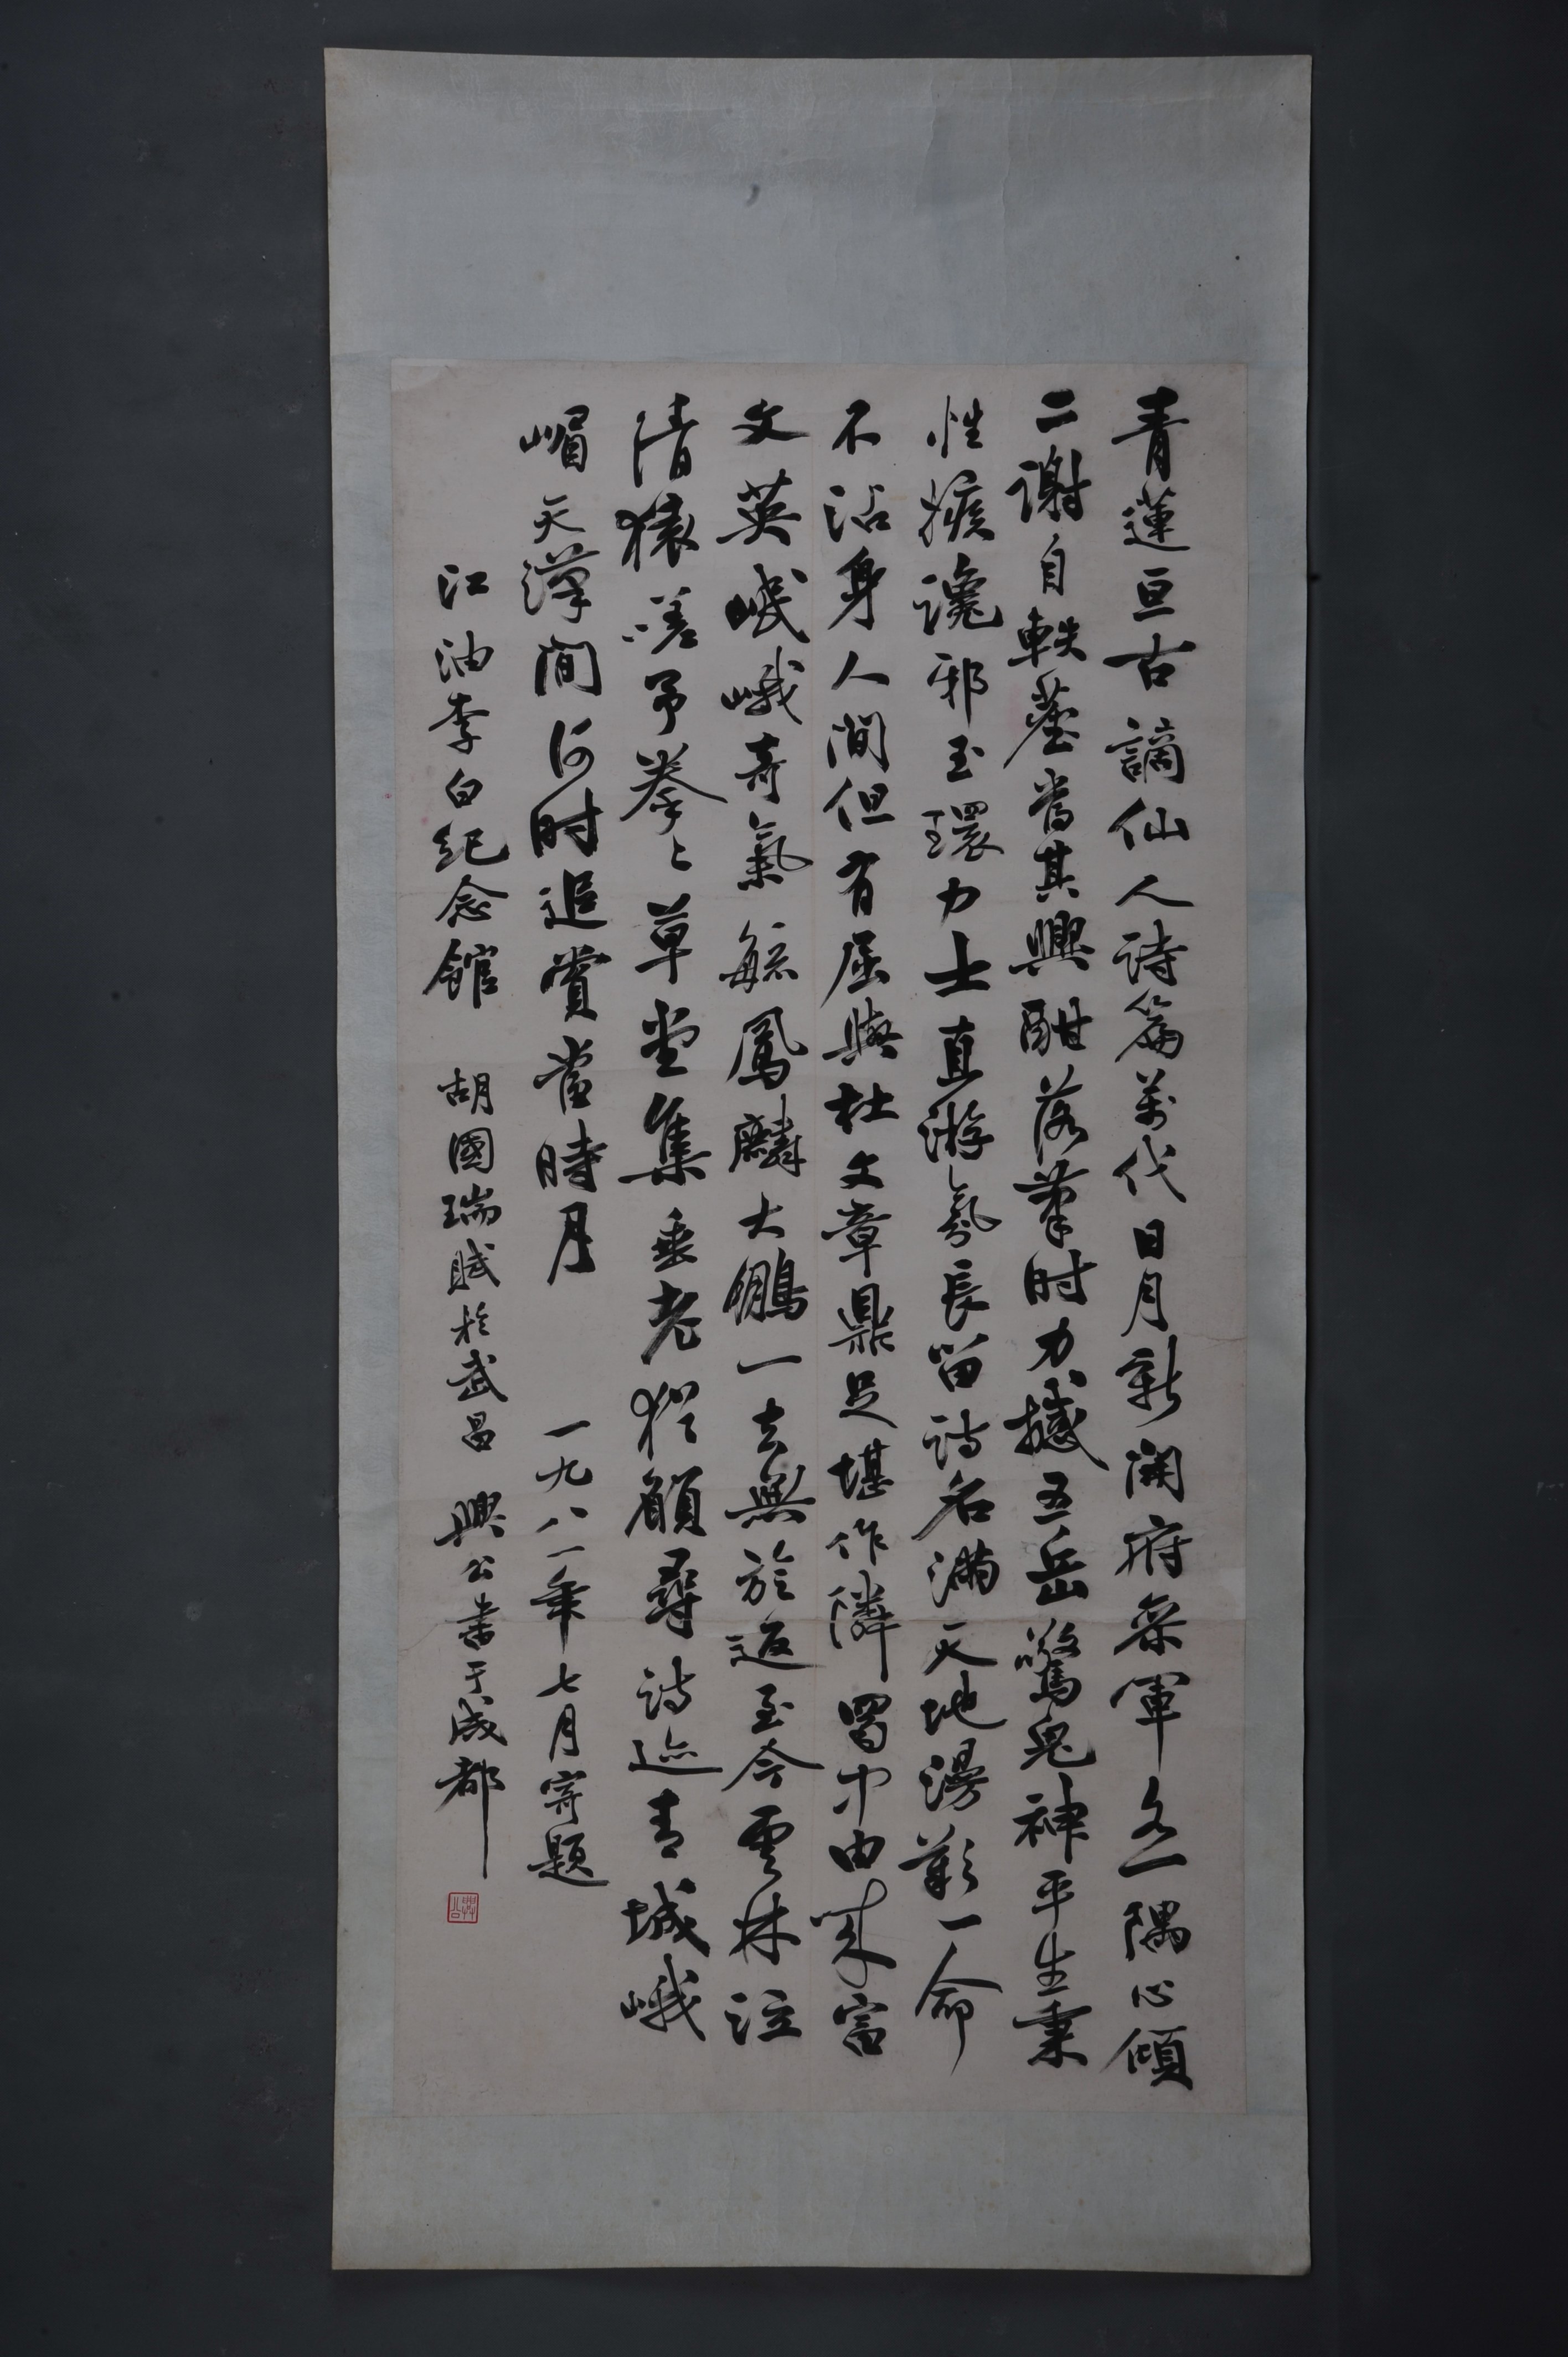 青蓮亘古謫仙人詩篇萬代日月新開府參軍各一隅心傾
二謝自軼塵當其興酣落筆时力撼五岳驚鬼神平生秉
性疾讒邪玉環力士直游氛長留詩名滿天地漫歎一命
不沾身人間但有屈與杜文章鼎足堪作隣蜀中由来富
文英岷峨奇氣毓鳳麟大鵬一去無於返至今雲林泣
清猿嗟予拳〻草堂集垂老猶願尋詩迹青城峨
嵋天漢間何时追賞當時月 一九八一年七月寄題
江油李白纪念館 胡國瑞賦於武昌 興公書于成都